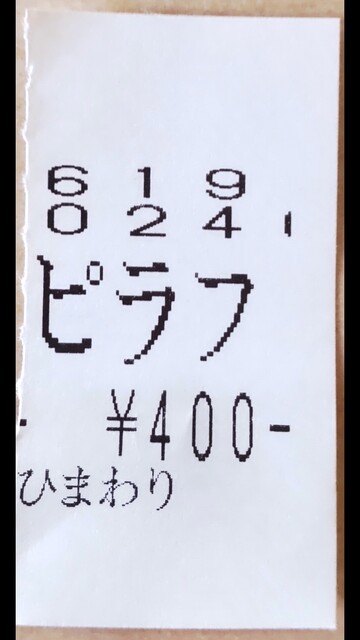 6 1 9
0 2 4
ピラフ
¥400-
ひまわり